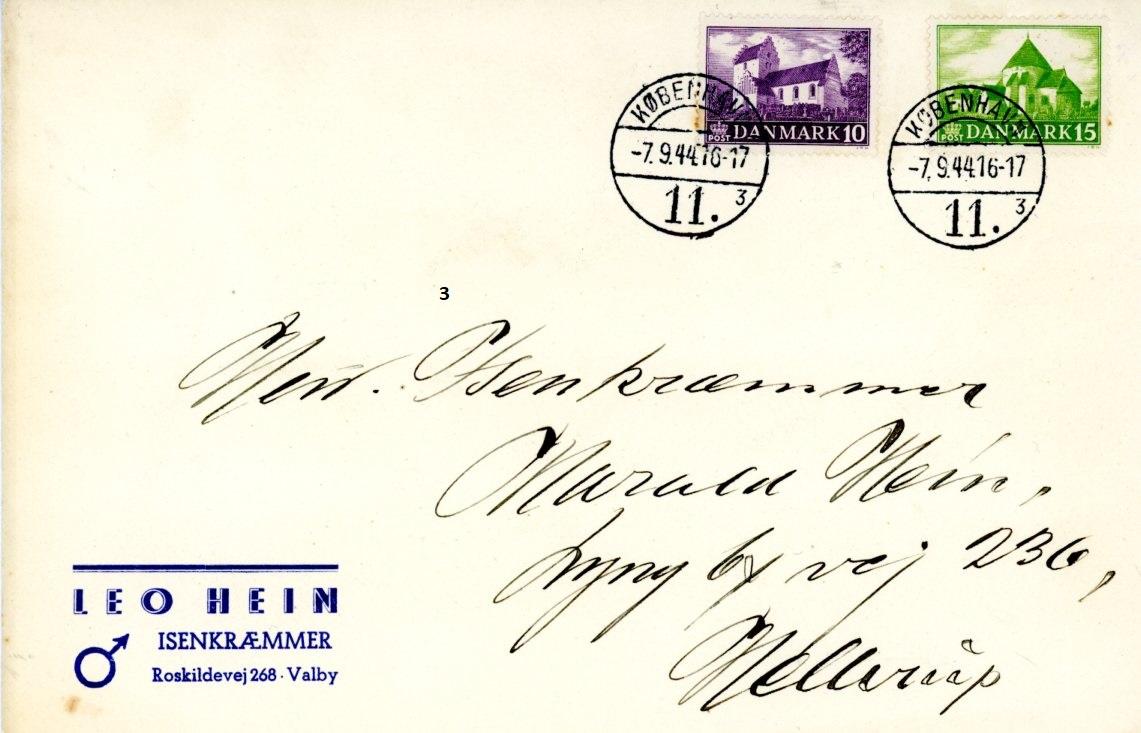 POST DANMARK 10
POST DANMARK 15
KØBENHAVN
-7.9.44.16-17
11. 3
KØBENHAVN
-7.9.44.16-17
11. 3
3
Herr. Isenkræmmer
Harald Hein,
Lyngbyvej 236,
Hellerup
LEO HEIN
ISENKRÆMMER
Roskildevej 268 · Valby